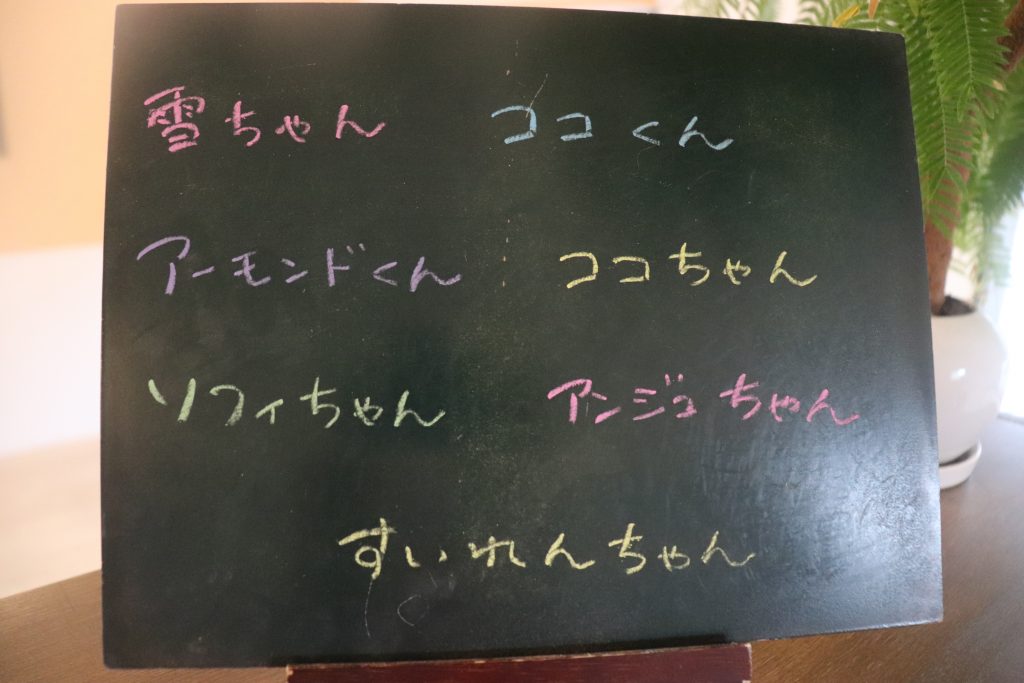 雪ちゃん ココくん
アーモンドくん ココちゃん
ソフィちゃん アンジュちゃん
すいれんちゃん